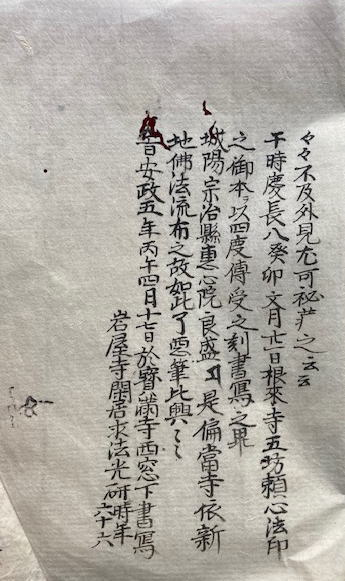 々々不及外見尤可祕之云云
于時慶長八癸卯文月廿一日根來寺五坊頼心法印
之御本ヲ以四度傳受之刻書寫之畢
城陽宗治縣惠心院良盛是偏當寺依新
地佛法流布之故如此了惡筆比興〻〻
旹安政五年丙午四月十七日於寳寺西窓下書寫
岩屋寺閑居求法光研時年六十六